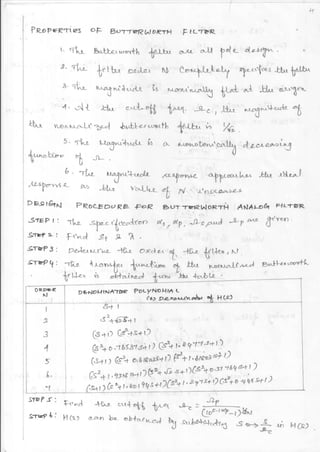 PROPERTIES OF BUTTERWORTH FILTER
1. The Butterworth filter are all pole design.
2. The filter order N completely specifies the filter
3. The magnitude is maximally flat at the origin
4. At the cut-off freq. Ωc, the magnitude of
the normalized butterworth filter is 1/√2.
5. The magnitude is a monotonically decreasing
function of Ω.
6. The magnitude response approaches the ideal
response as the value of N increases
DESIGN PROCEDURE FOR BUTTERWORTH ANALOG FILTER
STEP 1: The specification αs, αp, Ωs and Ωp are given
STEP 2: Find
STEP 3: Determine the order of the filter, N
STEP 4: The transfer function of the normalized Butterworth
filter is obtained from the table.
ORDER N DENOMINATOR POLYNOMIAL (as Denominator of H(s))
1 s+1
2 s²+√2s+1
3 (s+1) (s²+s+1)
4 (s²+0.76537s+1) (s²+1.8477s+1)
5 (s+1) (s²+0.61803s+1) (s²+1.61803s+1)
6. (s²+1.931855s+1)(s²+√2 s+1)(s²+0.51764s+1)
7 (s+1)(s²+1.80194s+1)(s²+1.247s+1)(s²+0.445s+1)
STEP 5: Find the cut off freq Ωc = Ωp / (10^0.1αp − 1)^1/2N
STEP 6: H(s) can be obtained by substituting s → s/Ωc in H(s).